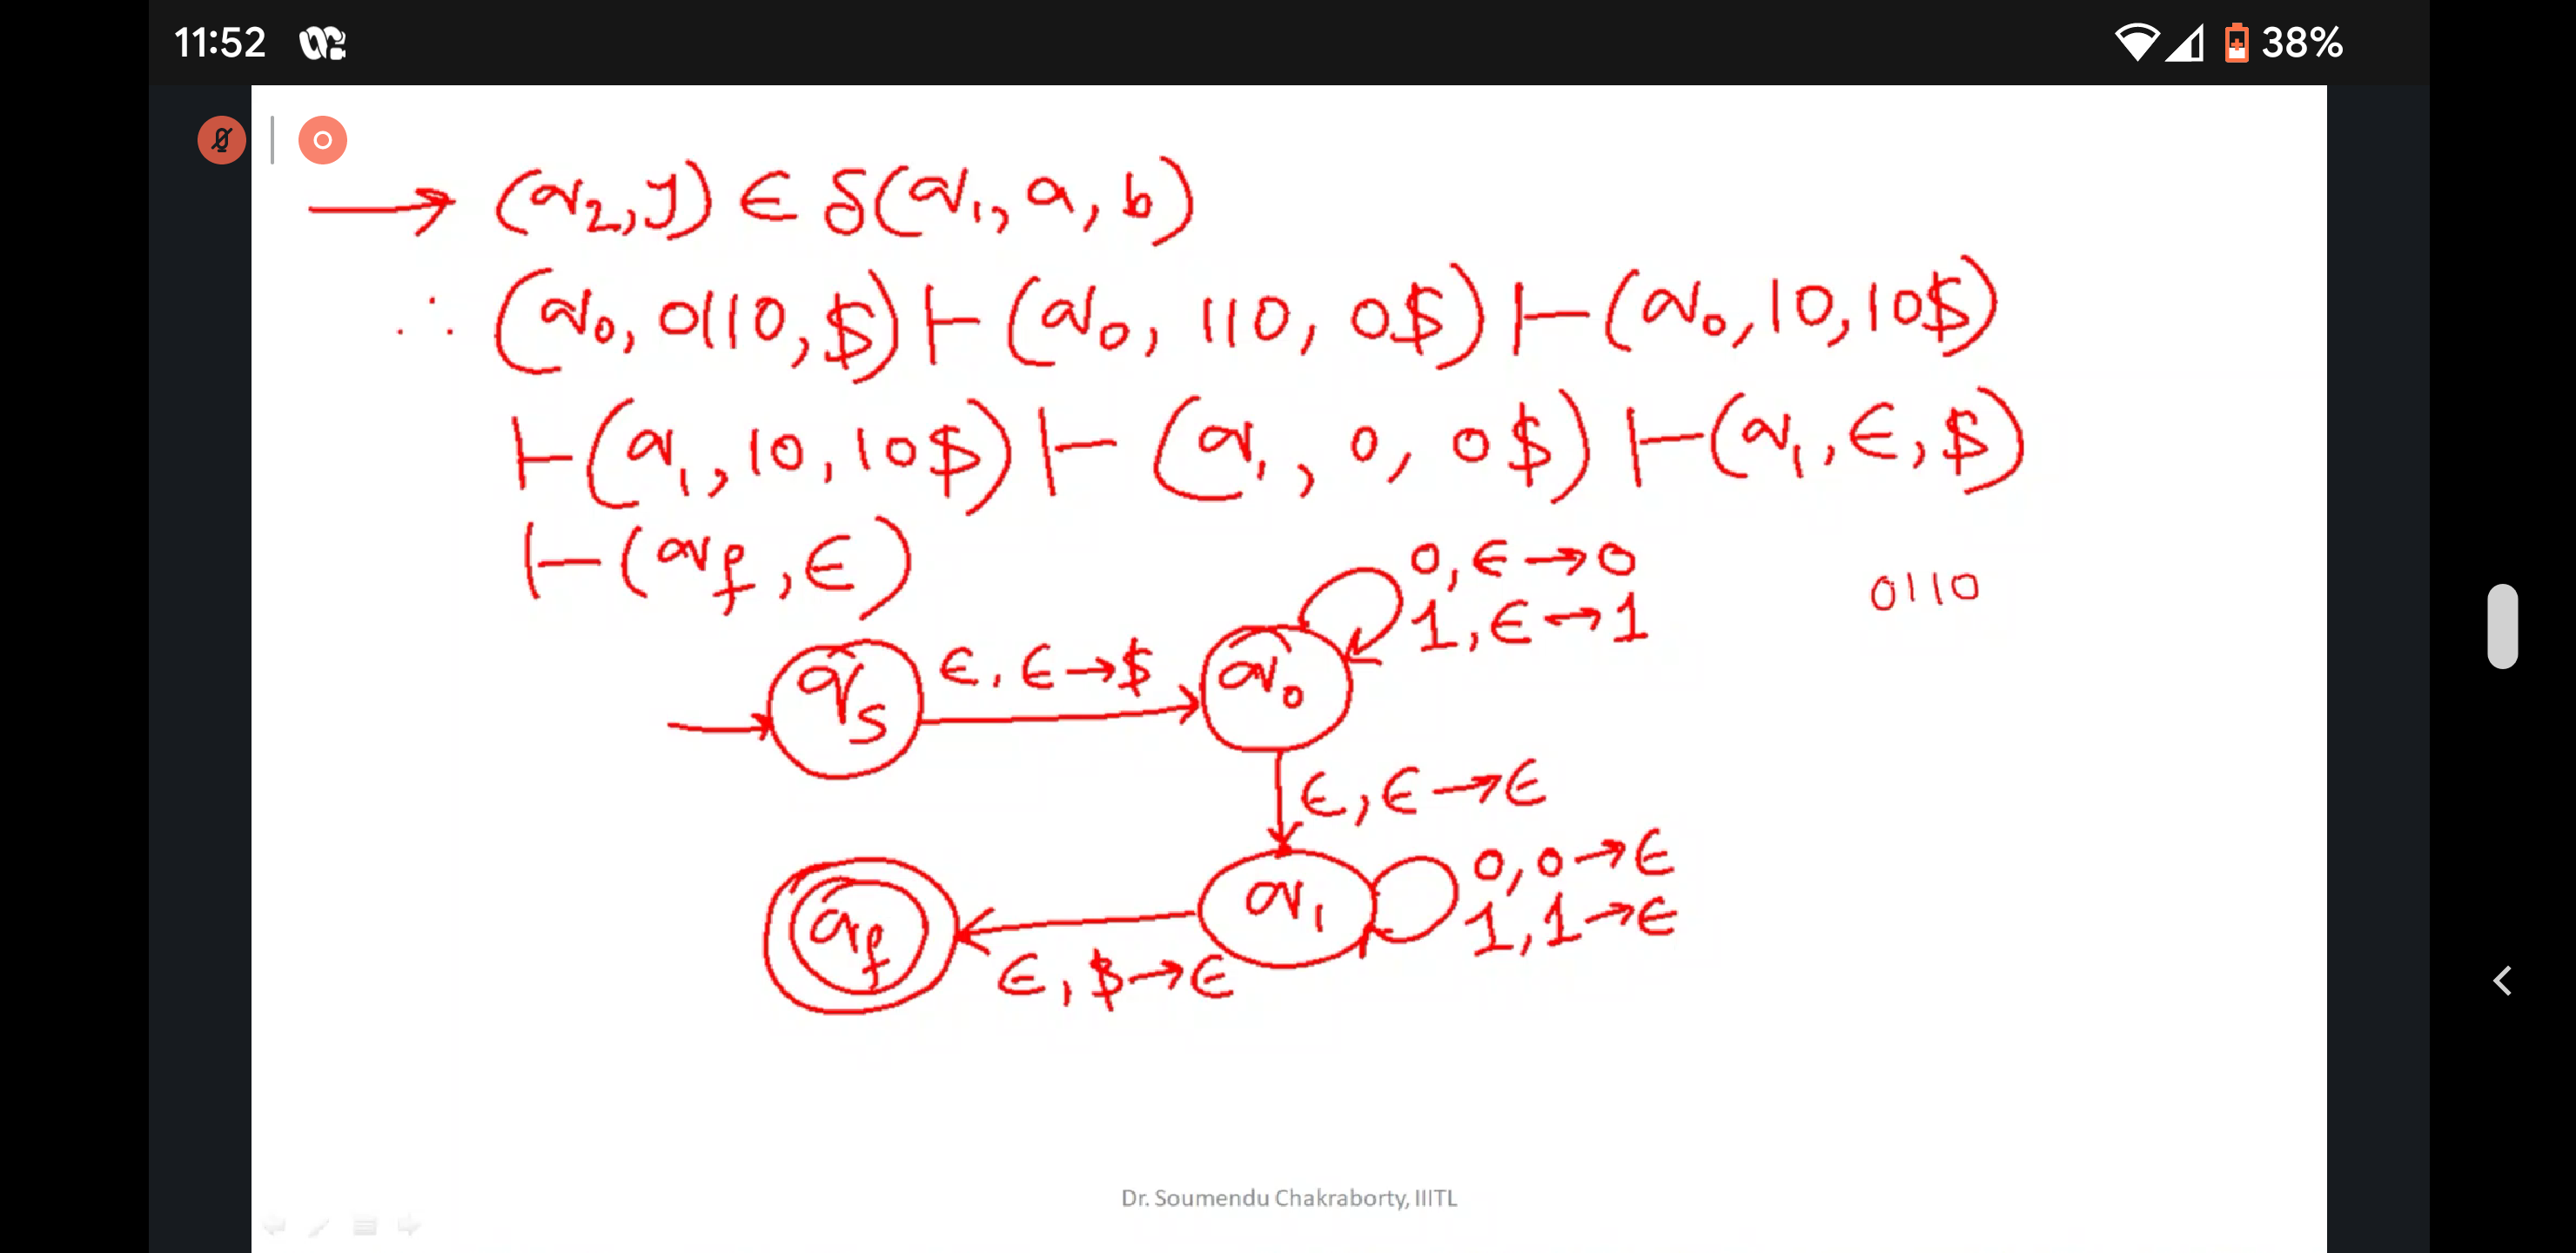 11:52 38%
→ (q₂, y) ∈ δ(q₁, a, b)
∴ (q₀, 0110, $) ⊢ (q₀, 110, 0$) ⊢ (q₀, 10, 10$)
⊢ (q₁, 10, 10$) ⊢ (q₁, 0, 0$) ⊢ (q₁, ϵ, $)
⊢ (q_f, ϵ)
0, ϵ → 0
1, ϵ → 1
0110
q_s
ϵ, ϵ → $
q₀
ϵ, ϵ → ϵ
q_f
ϵ, $ → ϵ
q₁
0, 0 → ϵ
1, 1 → ϵ
Dr. Soumendu Chakraborty, IIITL